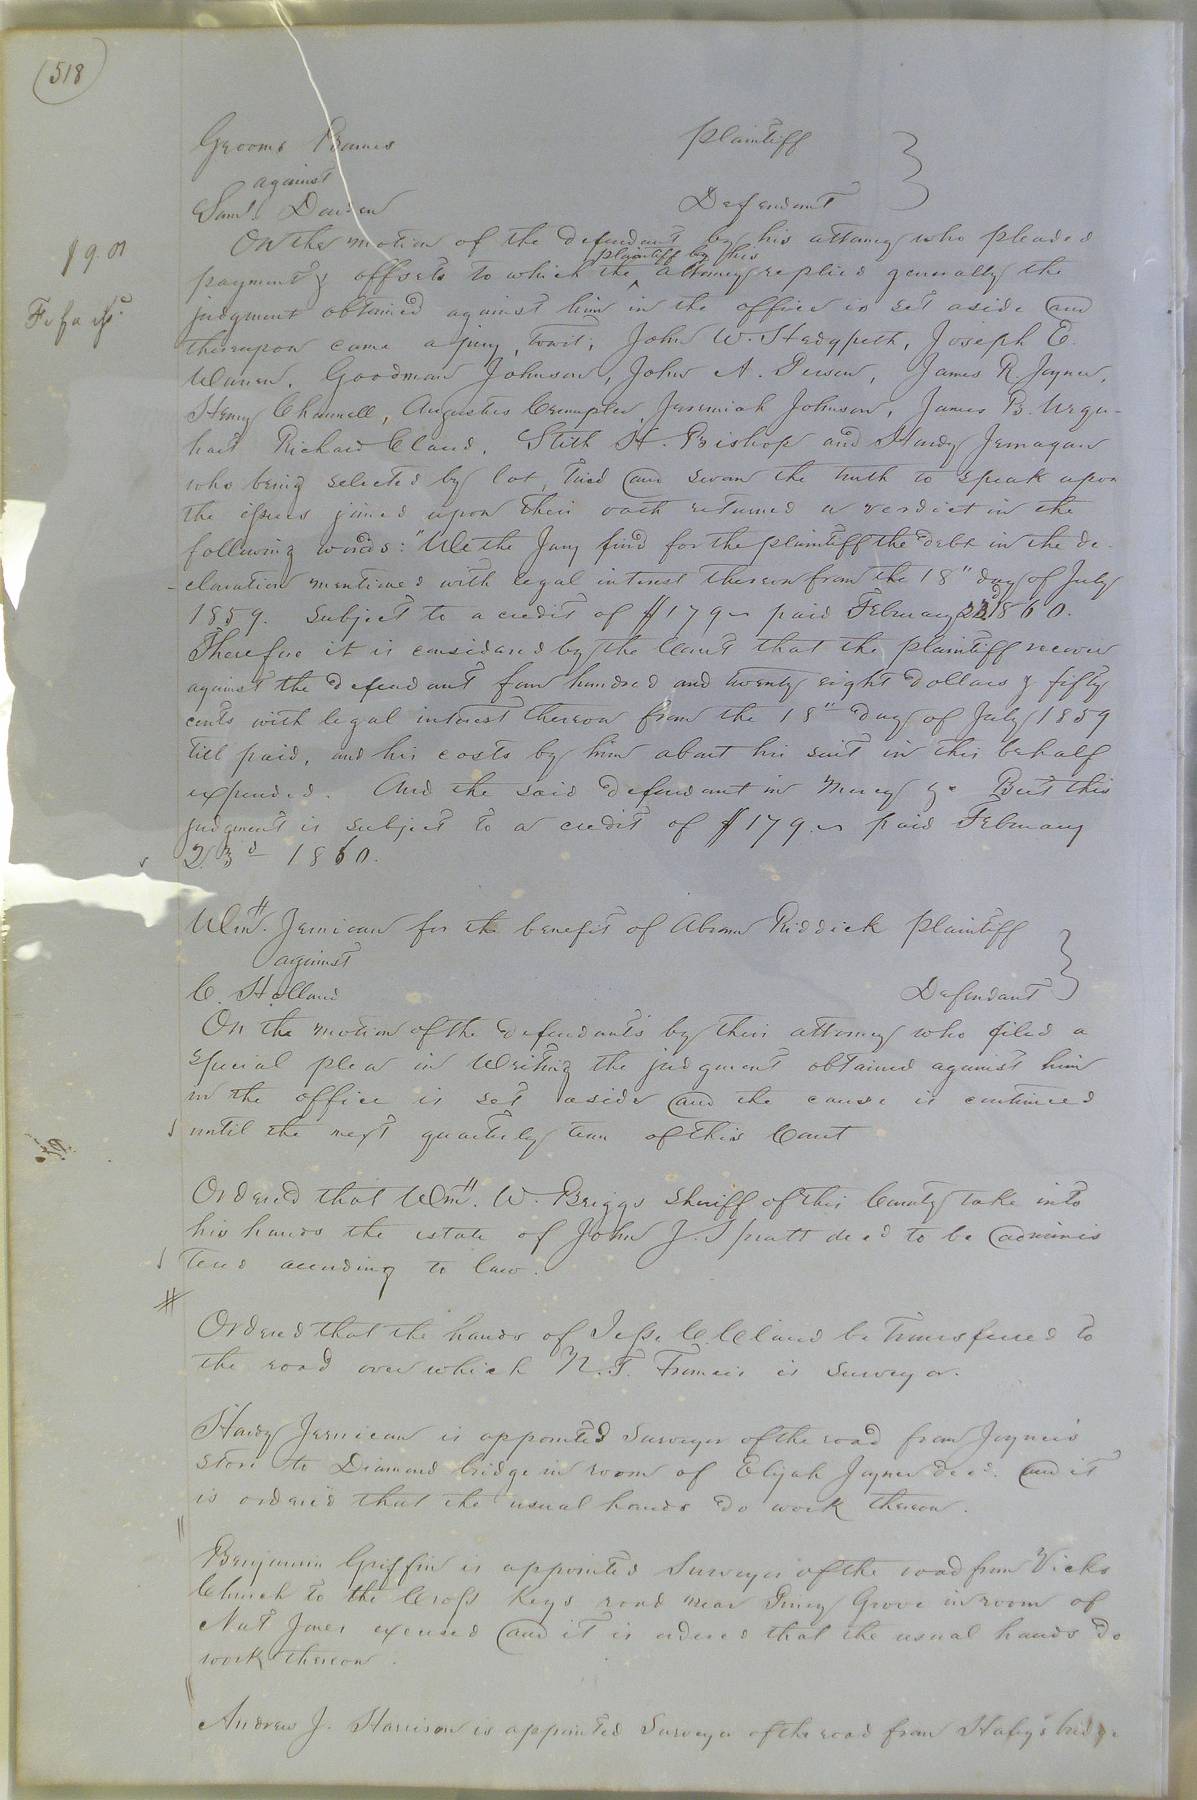 518
Grooms Barnes Plaintiff
against
Saml. Darden Defendant
On the motion of the defendant by his attorney who pleaded
plaintiff by his
payment & offsets to which the ^ attorney replied generally the
judgment obtained against him in the office is set aside and
$9.01
Fi fa
thereupon came a jury, towit; John W. Hedgpeth, Joseph E.
Warren, Goodman Johnson, John A. Person, James R. Joyner,
Henry Channell, Augustus Crumpler, Jeremiah Johnson, James B. Urqu-
hart Richard Claud, Stith H. Bishop and Hardy Jernagan
who being selected by lot, tried and sworn the truth to speak upon
the issues joined upon their oath returned a verdict in the
following words: "We the Jury find for the plaintiff the debt in the de-
-claration mentioned with legal interest thereon from the 18" day of July
1859. subject to a credit of $179 paid February 23d 1860.
Therefore it is considered by the Court that the plaintiff recover
against the defendant four hundred and twenty eight dollars & fifty
cents with legal interest thereon from the 18" day of July 1859
till paid, and his costs by him about his suit in this behalf
expended. And the said defendant in Mercy &c But this
judgment is subject to a credit of $179 paid February
23d 1860.
Wm. Jernican for the benefit of Abram Riddick Plaintiff
against
C. Holland Defendant
On the motion of the defendants by their attorney who filed a
special plea in writing the judgment obtained against him
in the office is set aside and the cause is continued
until the next quarterly term of this Court
Ordered that Wm. W. Briggs Sheriff of this County take into
his hands the estate of John J. Spratt decd to be adminis
tered according to law.
#
Ordered that the hands of Jesse C. Claud be transferred to
the road over which N. T. Francis is surveyor.
Hardy Jernican is appointed Surveyor of the road from Joyner's
store to Diamond bridge in room of Elijah Joyner decd. and it
is ordered that the usual hands do work thereon.
Benjamin Griffin is appointed Surveyor of the road from Vicks
Church to the Cross Keys road near Piney Grove in room of
Nat Jones excused and it is ordered that the usual hands do
work thereon.
Andrew J. Harrison is appointed Surveyor of the road from Haley's bridge